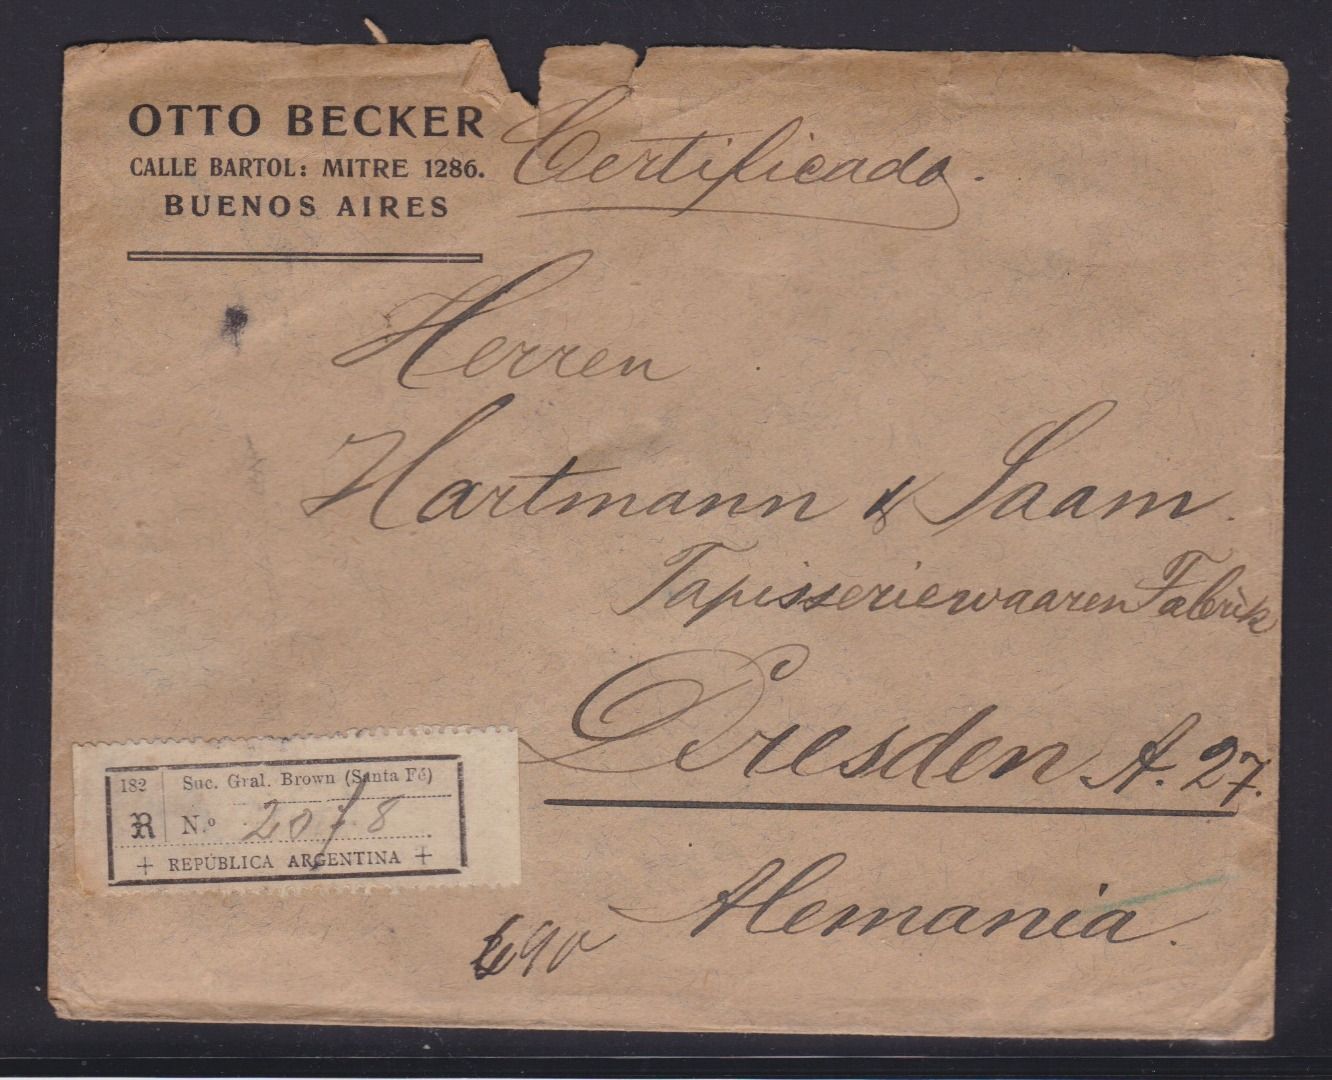 OTTO BECKER
CALLE BARTOL: MITRE 1286.
BUENOS AIRES
Certificado.
Herren
Hartmann & Saam.
Tapisseriewaaren Fabrik
Dresden A. 27.
Alemania.
182 Suc. Gral. Brown (Santa Fé)
R N.º
+ REPÚBLICA ARGENTINA +